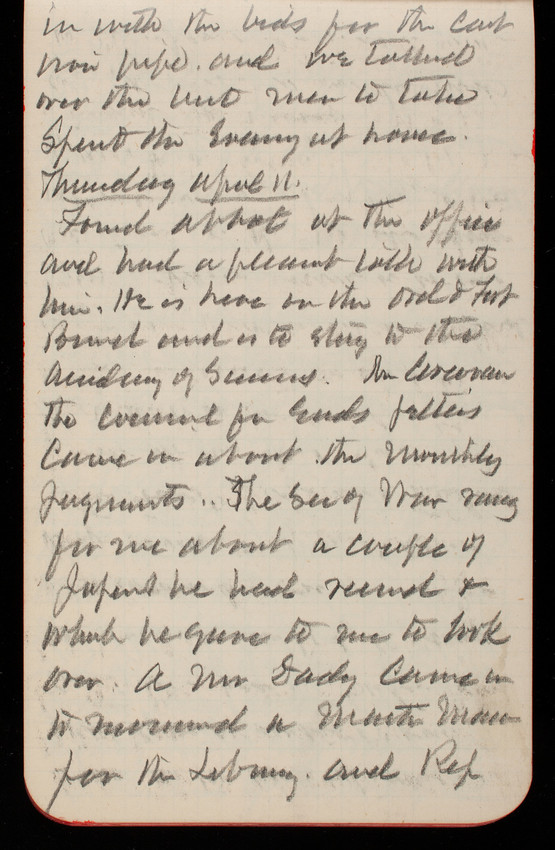 in with the bids for the cast
iron pipe. and we talked
over the best man to take
Spent the Evening at home.
Thursday April 11.
Found Abbot at the office
and had a pleasant talk with
him. He is here on the Ord & Fort
Board and is to stay to the
Academy of Sciences. Mr Corcoran
the Council for Eads
Came in about the Monthly
Judgments.. The Sec of War rang
for me about a couple of
he had &
which he gave to me to look
over. A Mr Dady Came in
to a
for the Library. and Rep